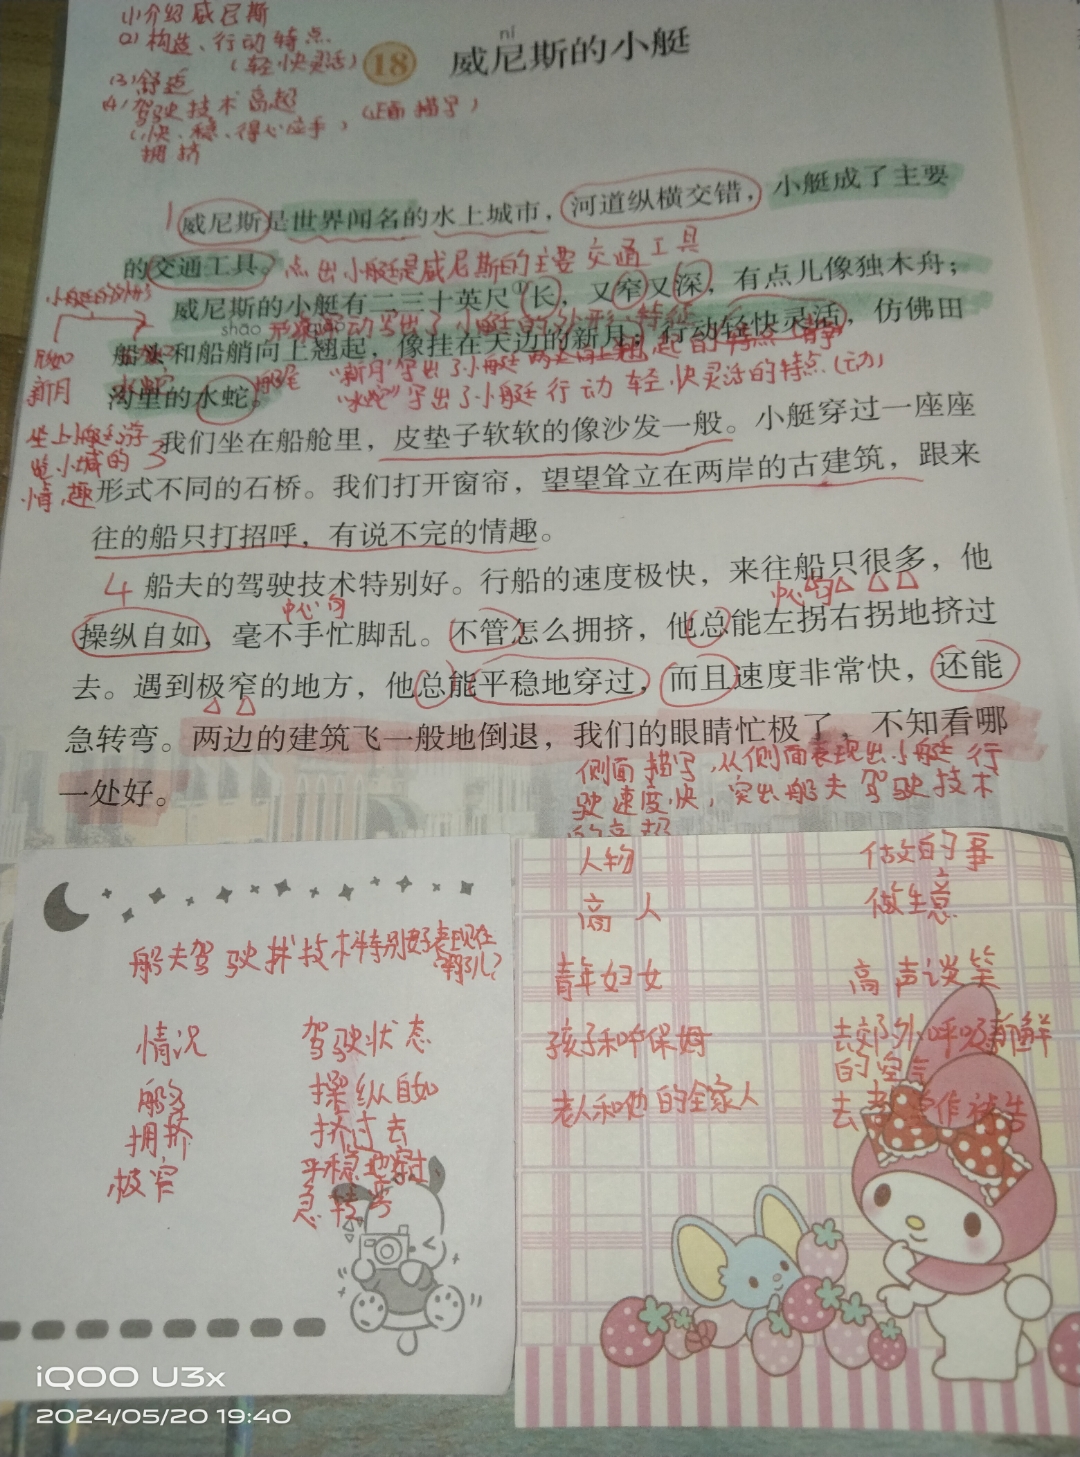 (1)介绍威尼斯
(2)构造、行动特点
(轻快灵活)
(3)舒适
(4)驾驶技术高超
(正面描写)
(快、稳、得心应手)
拥挤
18
ní
威尼斯的小艇
1 威尼斯是世界闻名的水上城市，河道纵横交错，小艇成了主要
的交通工具。
点出小艇是威尼斯的主要交通工具
小艇的外形
威尼斯的小艇有二三十英尺①长，又窄又深，有点儿像独木舟；
shāo
写出了小艇的外形特征
船头和船艄向上翘起，像挂在天边的新月；行动轻快灵活，仿佛田
形如
新月
船尾
"新月"写出了小艇两头向上翘起的特点（静）
沟里的水蛇。
"水蛇"写出了小艇行动轻快灵活的特点（动）
坐上小艇游
览小城的
情趣
3
我们坐在船舱里，皮垫子软软的像沙发一般。小艇穿过一座座
形式不同的石桥。我们打开窗帘，望望耸立在两岸的古建筑，跟来
往的船只打招呼，有说不完的情趣。
4 船夫的驾驶技术特别好。行船的速度极快，来往船只很多，他
中心句
中心句
操纵自如，毫不手忙脚乱。不管怎么拥挤，他总能左拐右拐地挤过
去。遇到极窄的地方，他总能平稳地穿过，而且速度非常快，还能
急转弯。两边的建筑飞一般地倒退，我们的眼睛忙极了，不知看哪
一处好。
侧面描写，从侧面表现出小艇行
驶速度快，突出船夫驾驶技术
的高超
船夫驾驶技术特别好表现在
哪儿？
情况 驾驶状态
船多 操纵自如
拥挤 挤过去
极窄 平稳地穿过
急转弯
人物 做的事
商人 做生意
青年妇女 高声谈笑
孩子和保姆 去郊外呼吸新鲜
的空气
老人和他的全家人 去教堂作祷告
iQOO U3x
2024/05/20 19:40